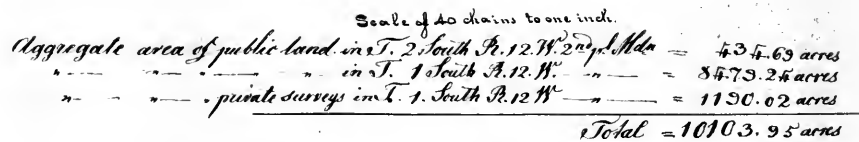 Scale of 40 chains to one inch.
Aggregate area of public land in T. 2 South R. 12. W. 2nd pl Mdn = 434.69 acres
" - " - " in T. 1 South R. 12. W. - " - = 8479.24 acres
" - " - private surveys in T. 1. South R. 12 W - " - = 1190.02 acres
Total = 10103.95 acres